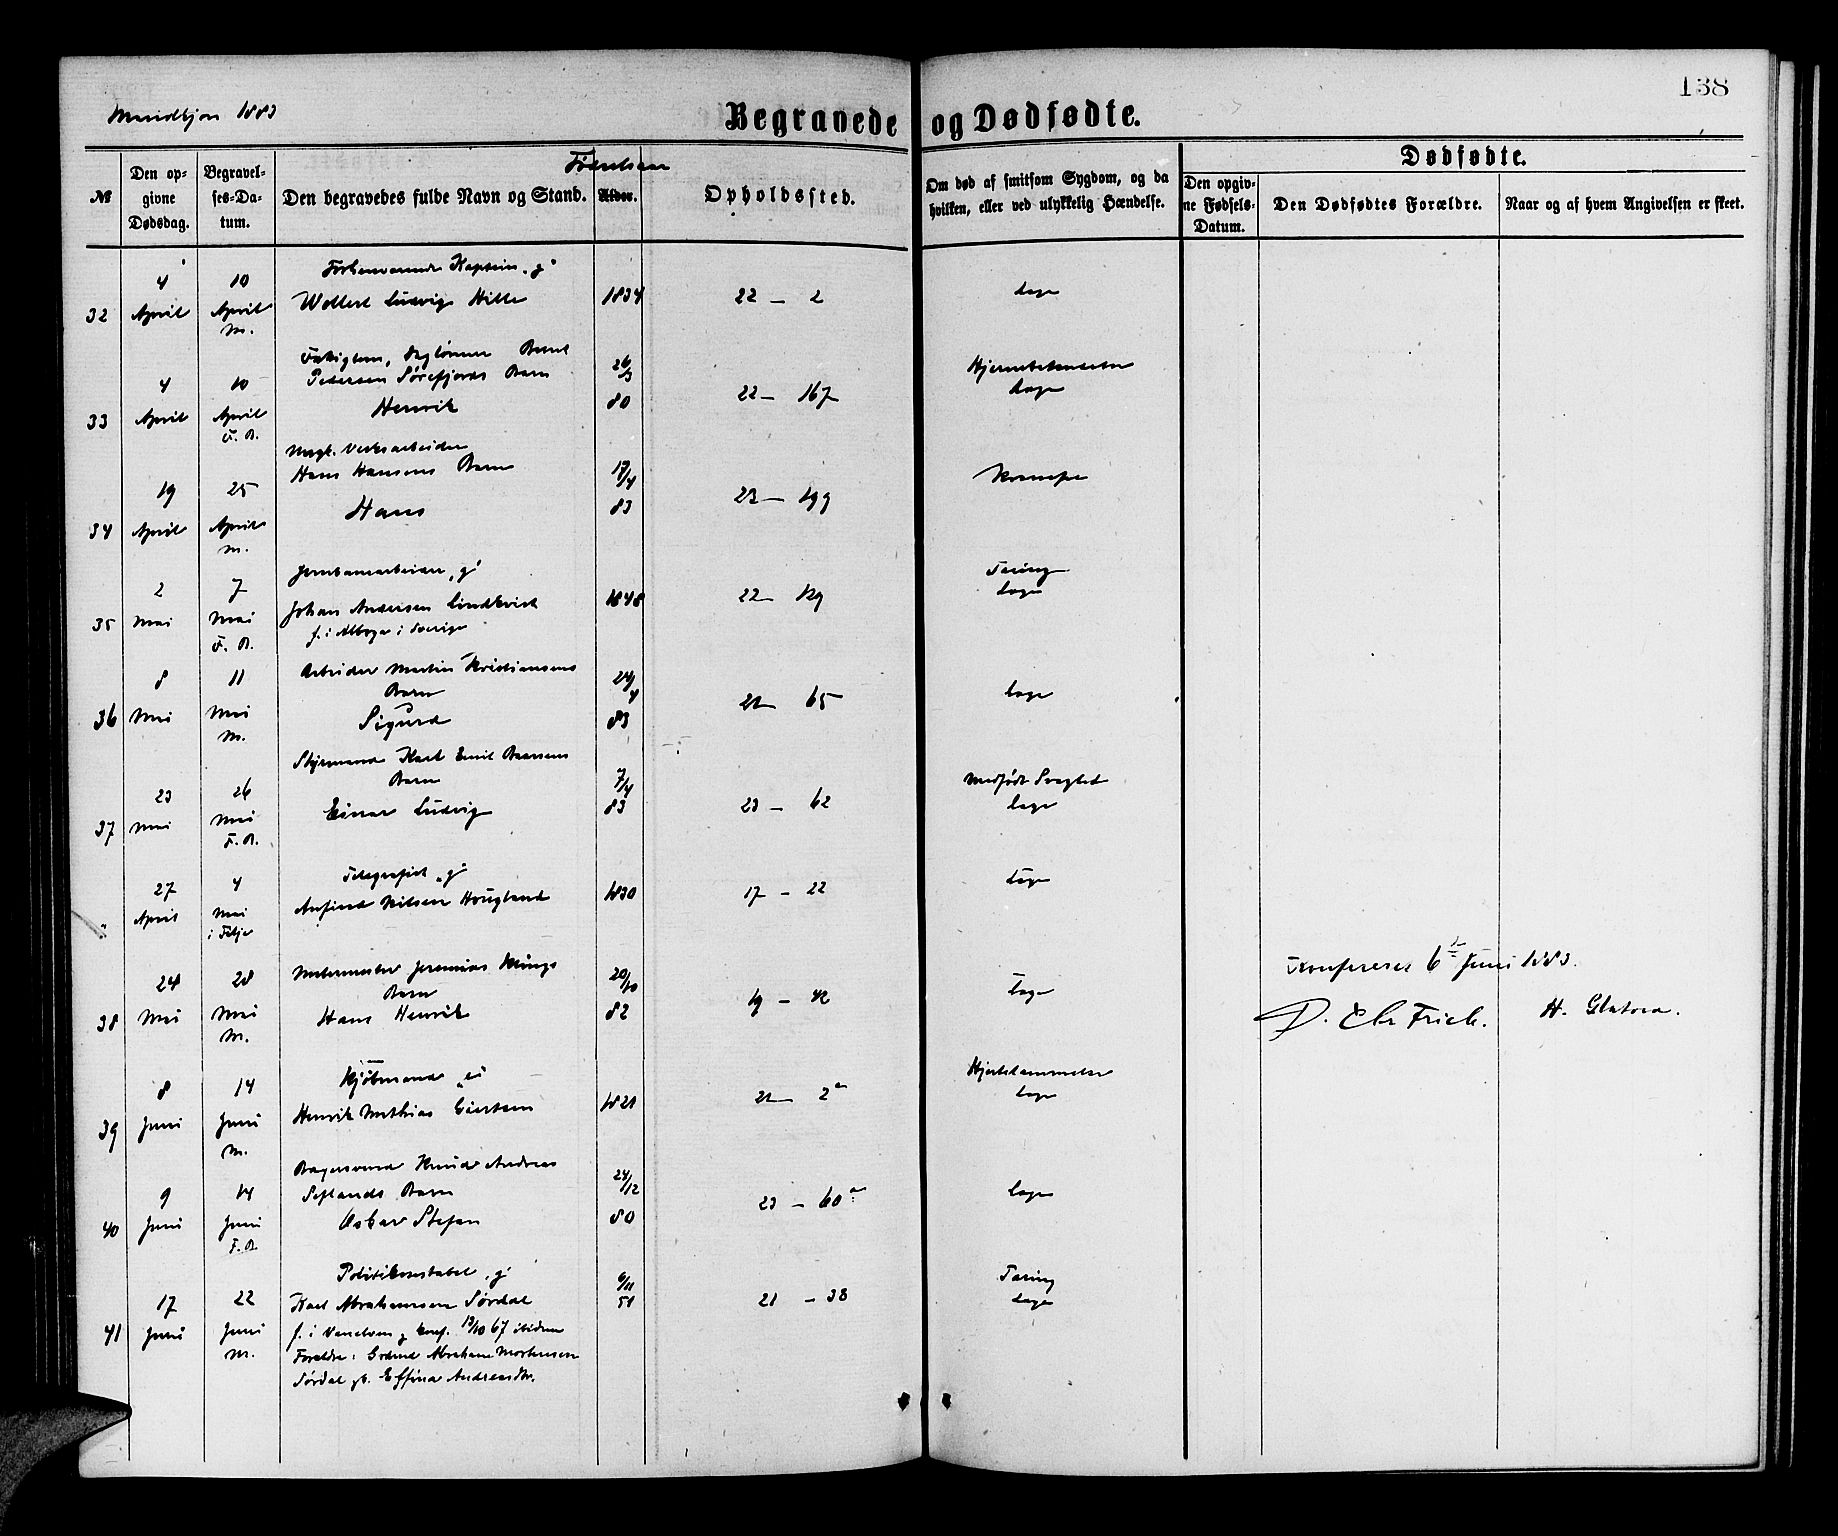 138
Mandkjøn 1883
Begravede og Dødfødte.
Dødfødte.
Fødselsaar
№
Den opgivne Dødsdag.
Begravelses-Datum.
Den begravedes fulde Navn og Stand.
Alder.
Opholdssted.
Om død af smitsom Sygdom, og da hvilken, eller ved ulykkelig Hændelse.
Den opgivne Fødsels-Datum.
Den Dødfødtes Forældre.
Naar og af hvem Angivelsen er skeet.
Forhenværende Kaptein, g
32 4 April 10 April M. Wollert Ludvig Hille 1834 22 – 2 Læge
Pedersen Sørefjords Barn
33 4 April 10 April F. B. Henrik 26/3 80 22 – 167 Læge
Hans Hansens Barn
34 19 April 25 April M. Hans 17/4 83 23 – 199
Jernbanearbeider, g
35 2 Mai 7 Mai F. B. Johan Andersen Lindkvist 1848 22 – 129 Tæring Læge
f. i Alboga i Sverige
Arbeider Martin Kristiansens
Barn
36 8 Mai 11 Mai M. Sigurd 24/4 83 21 – 65 Læge
Styrmand Karl Emil Baarsens
Barn
37 23 Mai 26 Mai F. B. Einar Ludvig 7/4 83 23 – 62 Medfødt Svaghed Læge
Telegrafist, g
" 27 April 4 Mai Anfind Nilsen Houglund 1830 17 – 22 Læge
Barn
38 24 Mai 28 Mai M. Hans Henrik 20/10 82 19 – 42 Læge
Konfereret 6te Juni 1883.
P. Chr Frich.
Kjøbmand, ei
39 8 Juni 14 Juni M. Henrik Mathias Eiertsen 1821 21 – 2a Læge
Bagersvend Knud Andreas
Seglands Barn
40 9 Juni 14 Juni F. B. Oskar Stefan 24/12 80 23 – 60a Læge
Politikonstabel, g
41 17 Juni 22 Juni M. Karl Abrahamsen Sørdal 6/11 51 21 – 38 Tæring Læge
f. i Vanelven g konf. 13/10 67 ibidem
Forældre: Grdmd Abraham Mortensen
Sørdal g. Effina Andreasdtr.